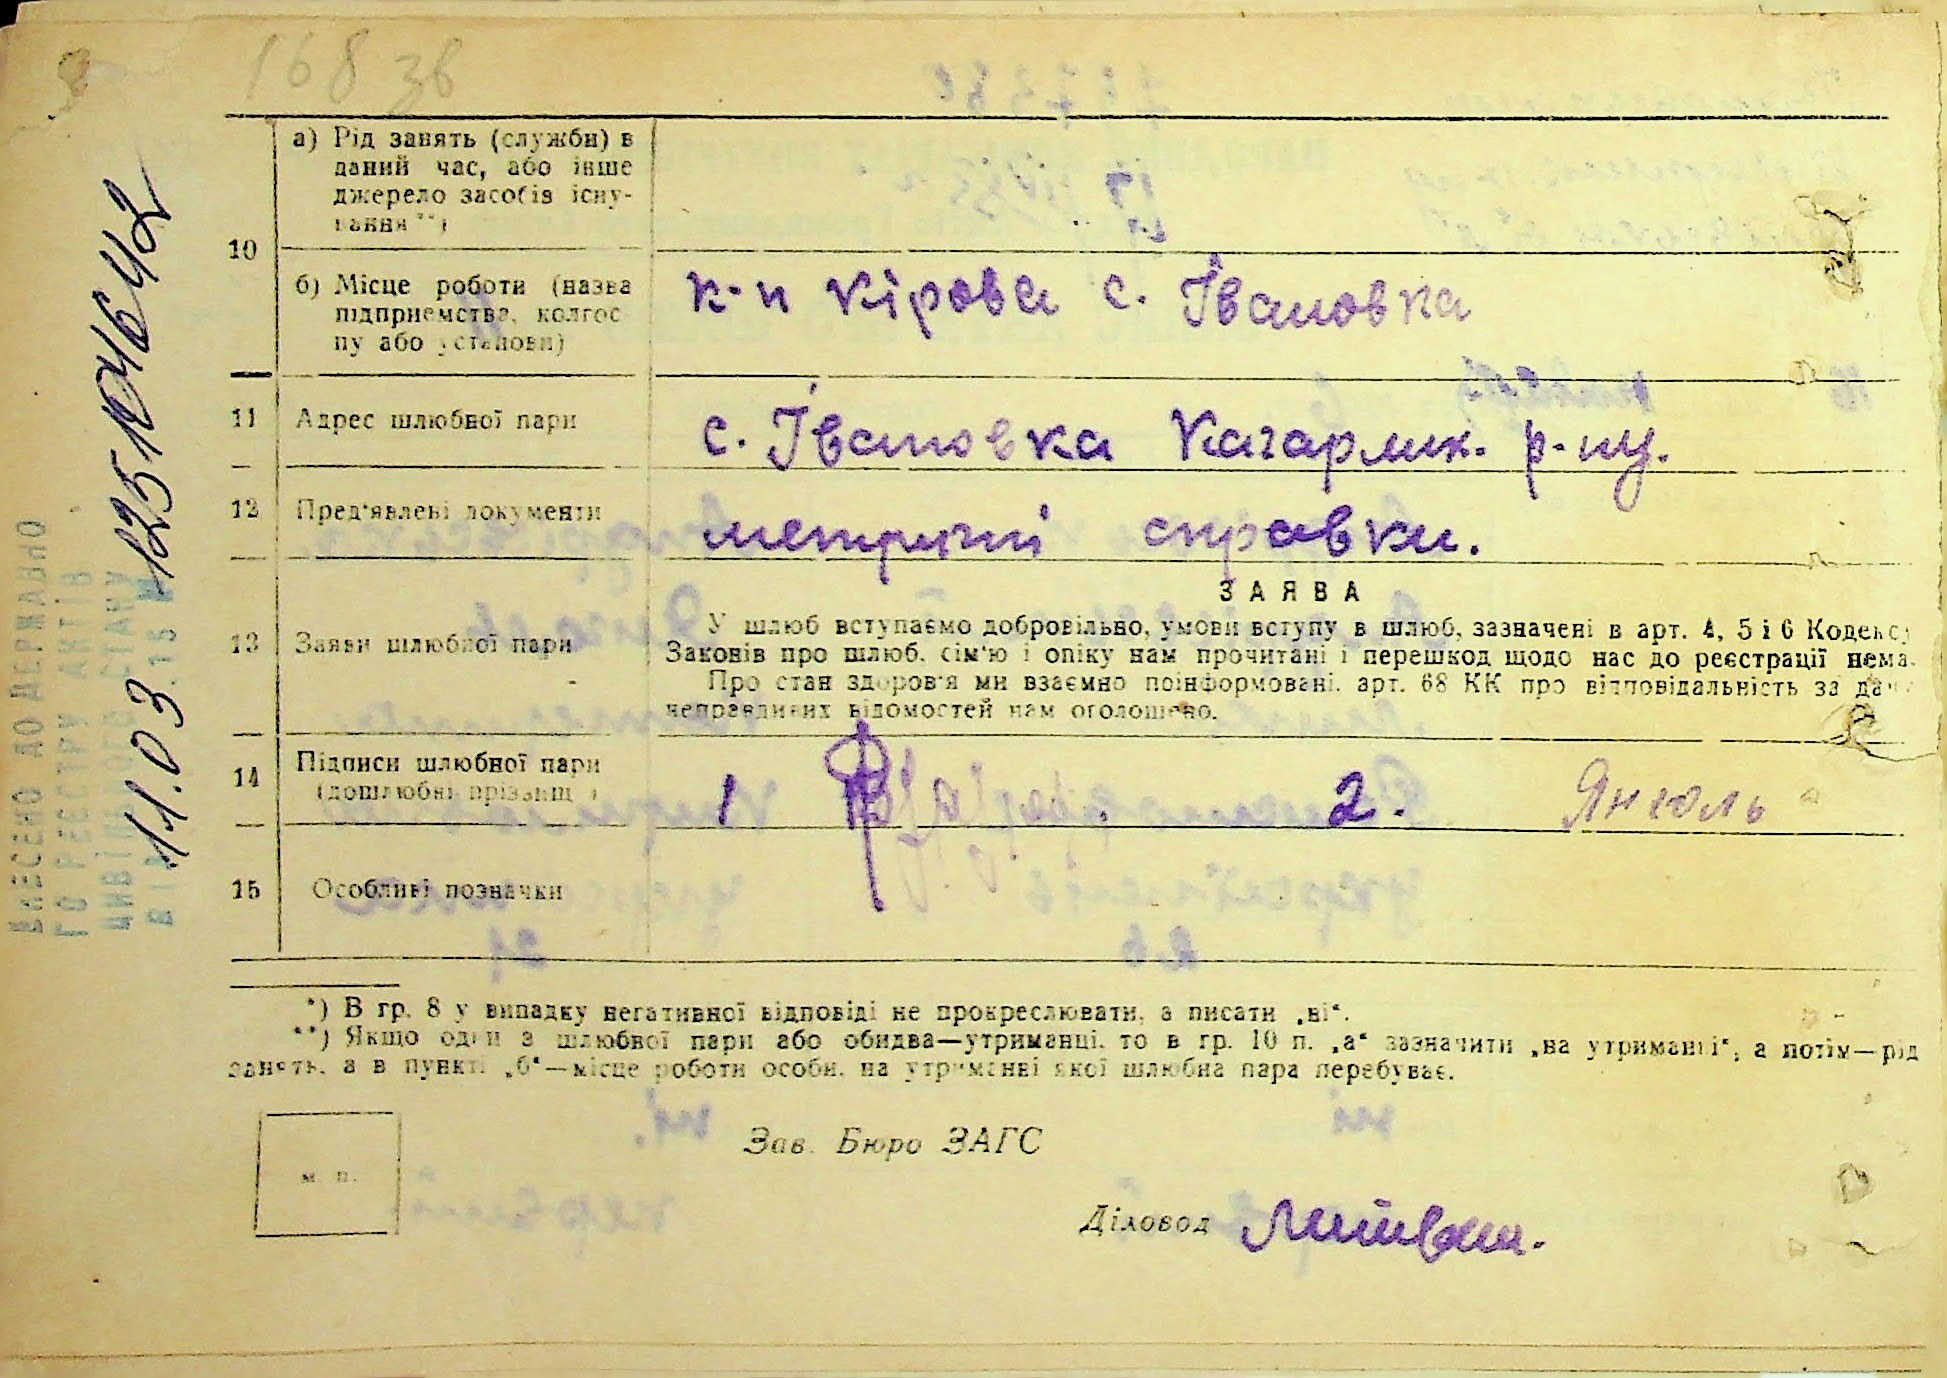 168 зв
10
а) Рід занять (служби) в
даний час, або інше
джерело засобів існу-
вання**)
б) Місце роботи (назва
підприємства, колгос
пу або установи)
к-п Кірова с. Івановка
11 Адрес шлюбної пари
с. Івановка Кагарлик. р-ну.
12 Пред'явлені документи
метричні справки.
13 Заяви шлюбної пари
ЗАЯВА
У шлюб вступаємо добровільно, умови вступу в шлюб, зазначені в арт. 4, 5 і 6 Кодексу
Законів про шлюб, сім'ю і опіку нам прочитані і перешкод щодо нас до реєстрації нема.
Про стан здоров'я ми взаємно поінформовані, арт. 68 КК про відповідальність за дач
неправдивих відомостей нам оголошено.
14 Підписи шлюбної пари
(дошлюбні прізвищ )
1 2. Янголь
15 Особливі позначки
*) В гр. 8 у випадку негативної відповіді не прокреслювати, а писати „ні“.
**) Якщо один з шлюбної пари або обидва—утриманці, то в гр. 10 п. „а“ зазначити „на утриманні“, а потім—рід
занять, а в пункті „б“—місце роботи особи, на утриманні якої шлюбна пара перебуває.
м. п.
Зав. Бюро ЗАГС
Діловод Литвин.
ВНЕСЕНО ДО ДЕРЖАВНО
ГО РЕЄСТРУ АКТІВ
ЦИВІЛЬНОГО СТАНУ
ВІД 11.03.13 № 12510464 2